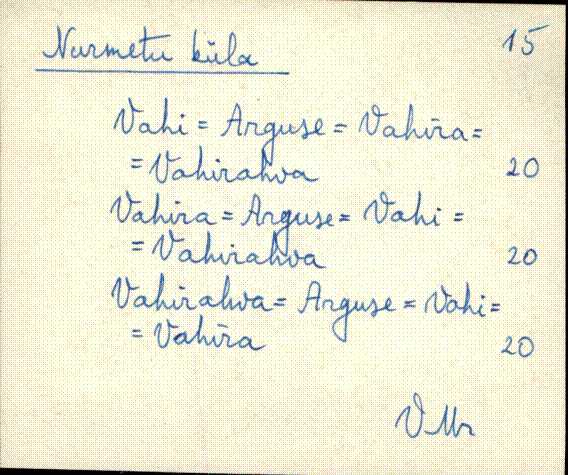 Nurmetu küla 15
Vahi = Arguse = Vahira =
= Vahirahva 20
Vahira = Arguse = Vahi =
= Vahirahva 20
Vahirahva = Arguse = Vahi =
= Vahira 20
VMr